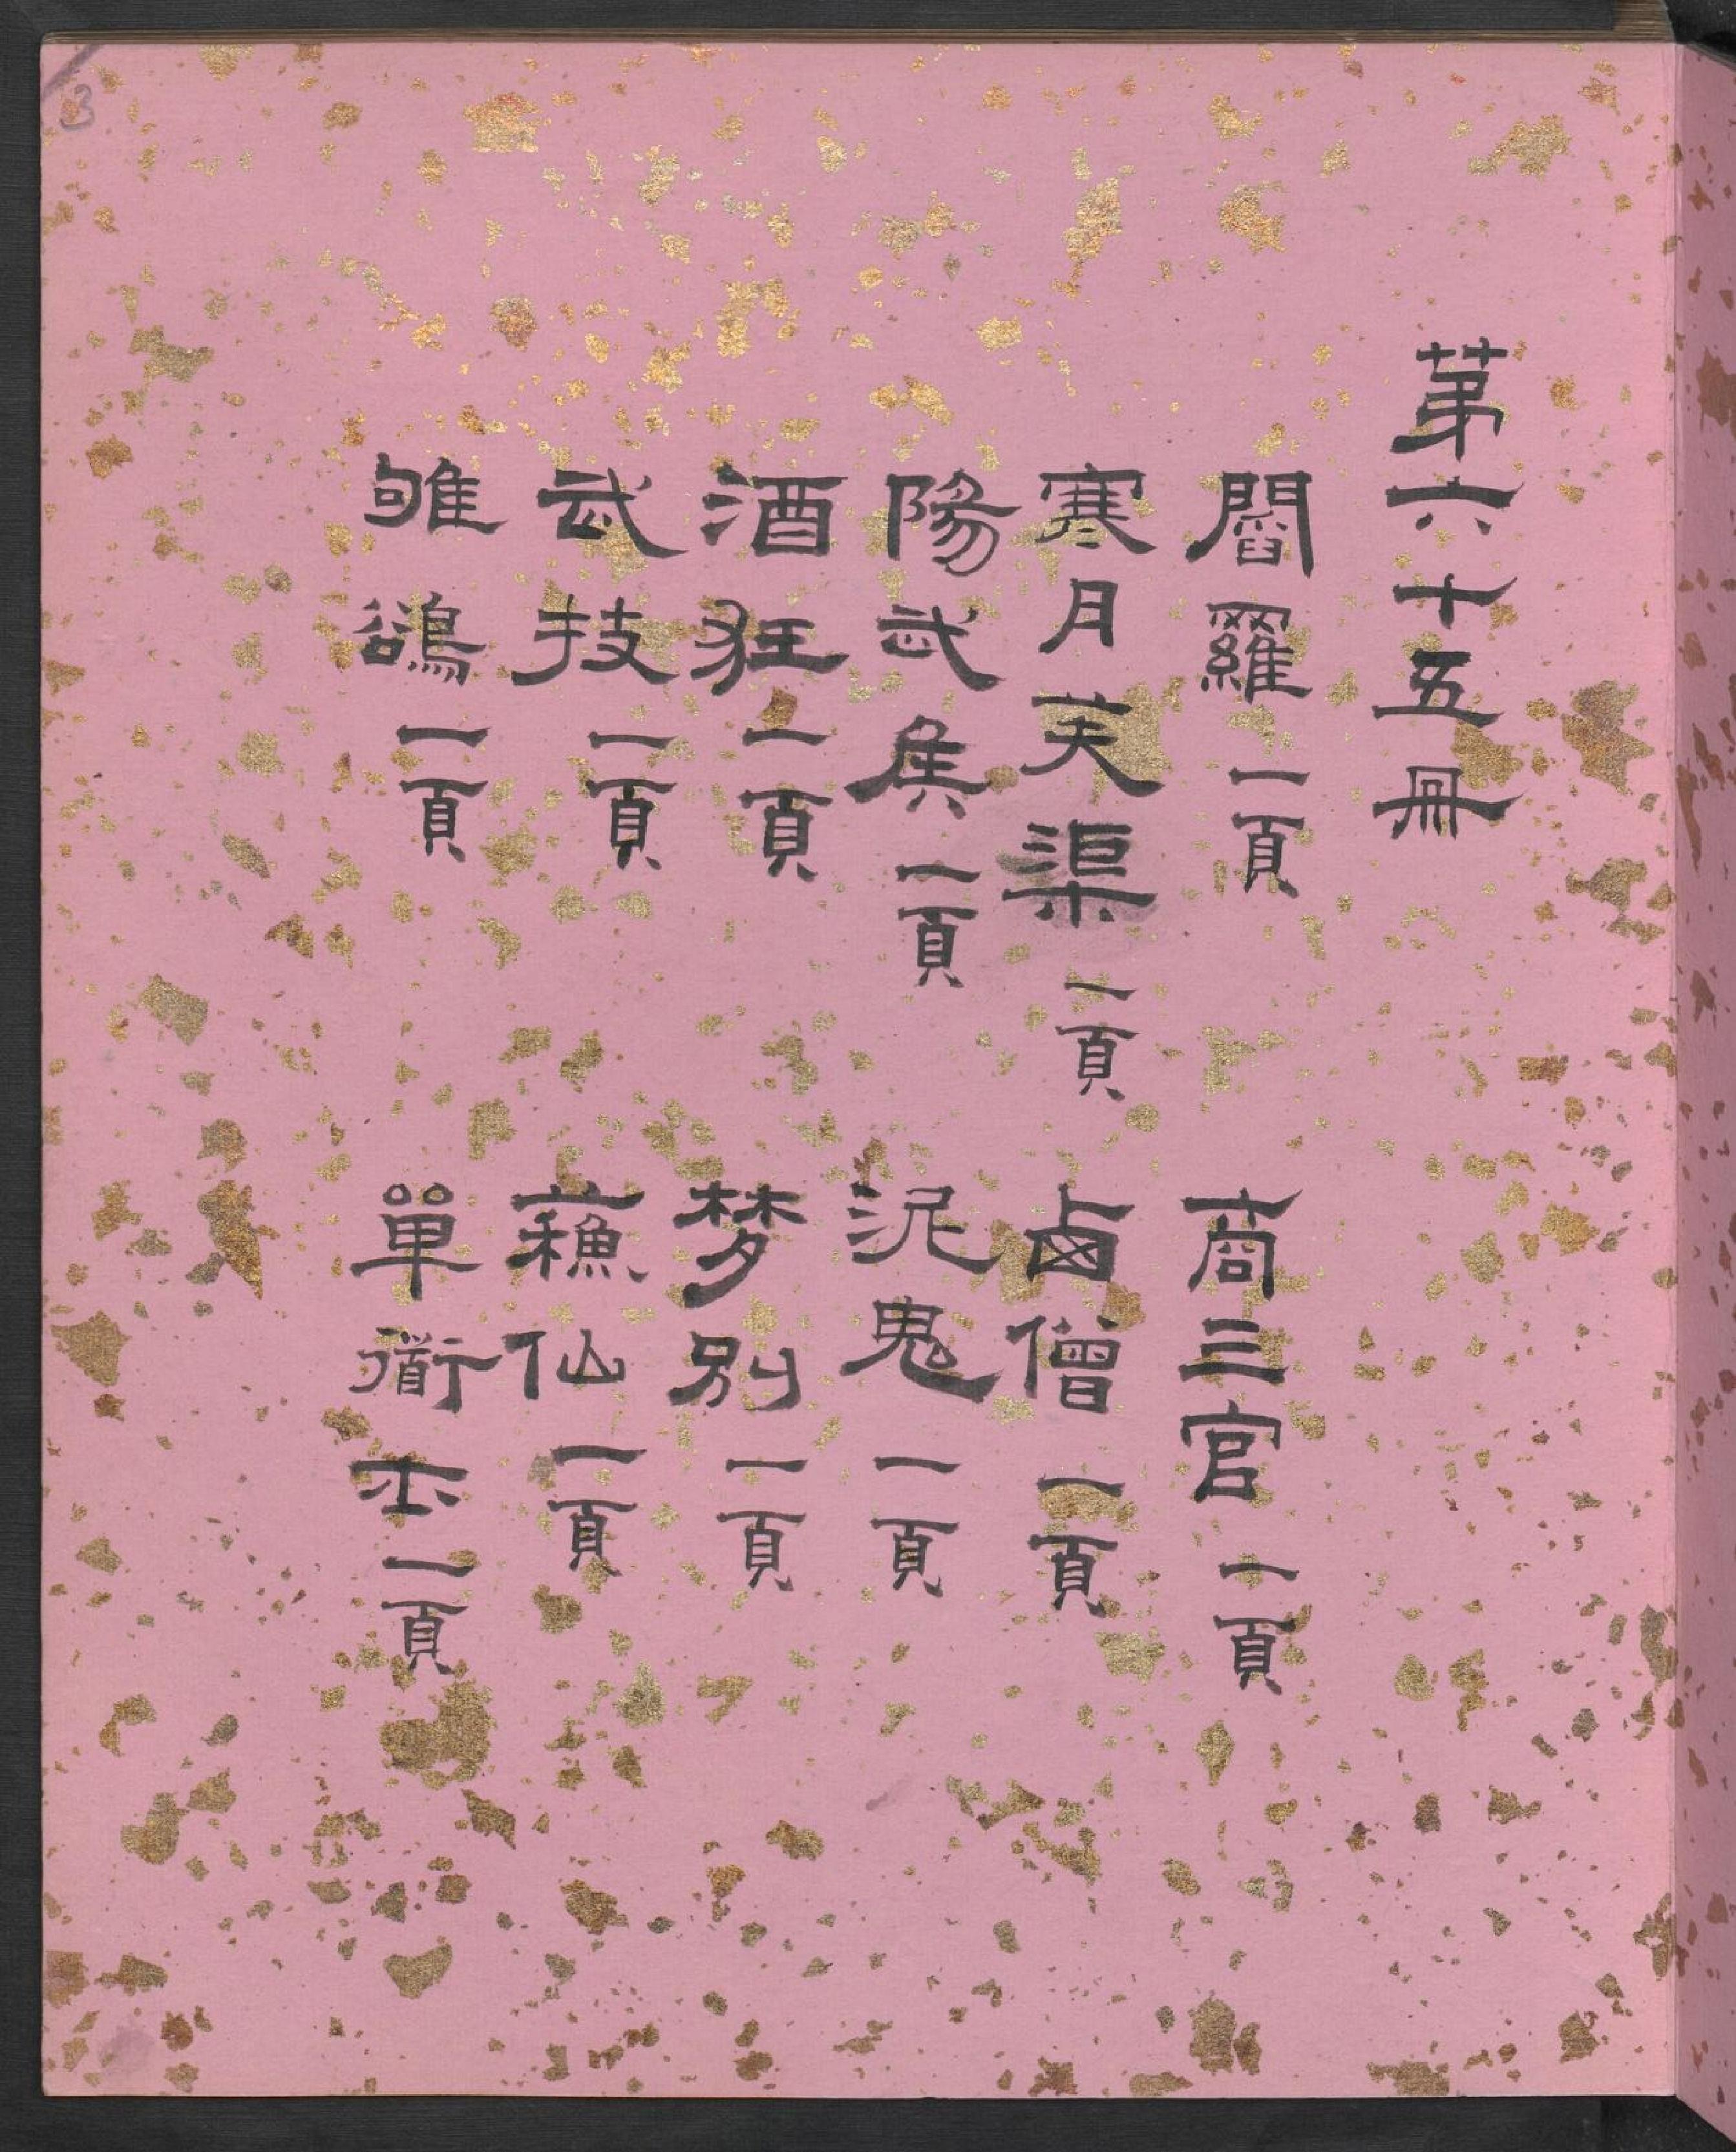 第六十五冊
閻羅一頁
商三官一頁
寒月芙渠一頁
鹵僧一頁
陽武矦一頁
泥鬼一頁
酒狂一頁
梦別一頁
武技一頁
蘓仙一頁
雊鵒一頁
單道士一頁
3